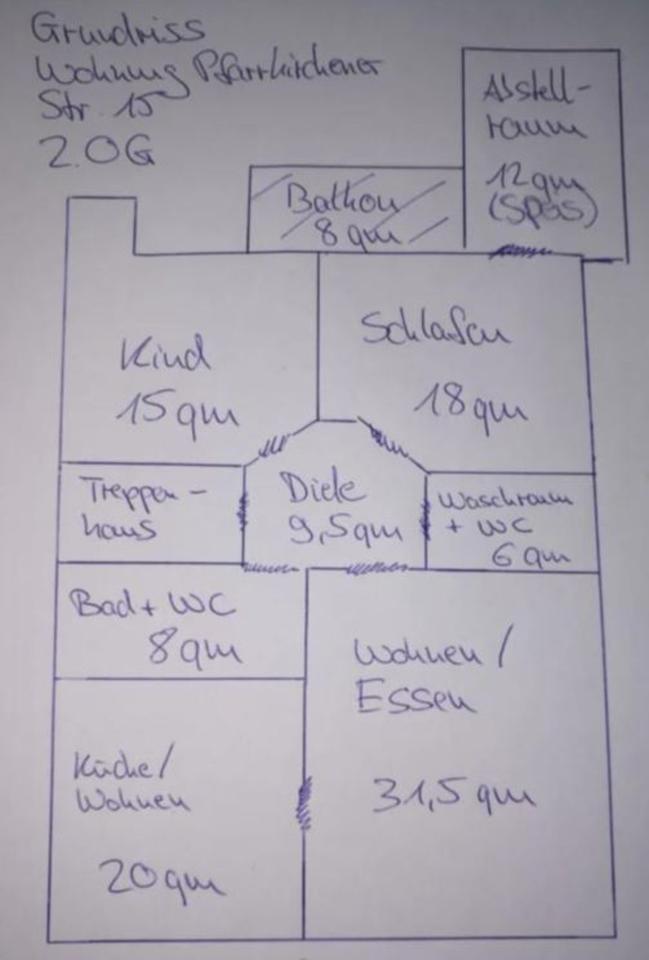 Grundriss
Wohnung Pfarrkirchener
Str. 15
2.OG
Abstell-
raum
12qm
(Spas)
Balkon
8qm
Kind
15qm
Schlafen
18qm
Treppen-
haus
Diele
9,5qm
Waschraum
+ WC
6qm
Bad + WC
8qm
Wohnen /
Essen
31,5qm
Küche/
Wohnen
20qm